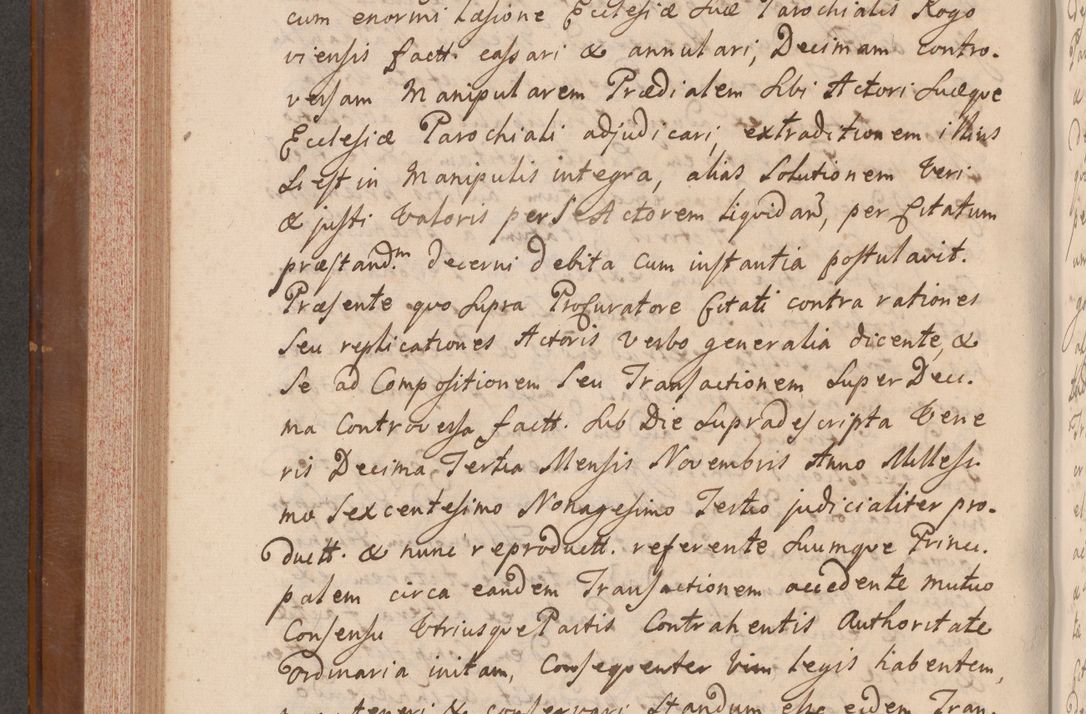 cum enormi Læsione Ecclesiæ Suæ Parochialis Rogo
viensis factt. cassari & annulari, Decimam contro-
versam Manipularem Prædialem Sibi Actori Suæque
Ecclesiæ Parochiali adjudicari, extraditionem illius
Si est in Manipulis integra, alias Solutionem Veri
& justi Valoris per Se Actorem liquidan3, per Citatum
præstand.m decerni debita cum instantia postulavit.
Præsente quo Supra Procuratore Citati contra rationes
Seu replicationes Actoris verbo generalia dicente, &
Se ad Compositionem Seu Transactionem Super Deci-
ma Controversa factt. Sub Die Supradescripta Vene
ris Decima Tertia Mensis Novembris Anno Millesi-
mo Sexcentesimo Nonagesimo Tertio judicialiter pro-
ductt. & nunc reproductt. referente Suumque Princi-
palem circa eandem Transactionem accedente mutuo
Consensu Utriusque Partis Contrahentis Authoritate
Ordinaria initam, Consequenter vim legis habentem,
teneri & conservari Standum esse eidem Tran-